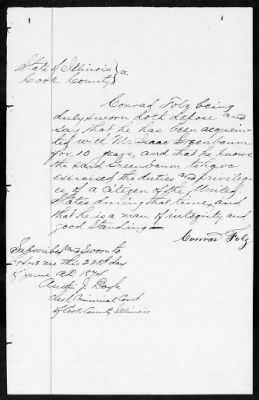 State of Illinois } ss.
Cook County
Conrad Folz being
duly sworn doth depose and
say that he has been acquain
ted with Mr. Isaac Greenbaum
for 10 years, and that he knows
the said Greenbaum to have
exercised the duties and privileg
es of a Citizen of the United
States during that time, and
that he is a man of integrity and
good Standing —
Conrad Folz
Subscribed and Sworn to
before me this 22nd day
of June A.D. 1874
Austin J. Doyle
Clerk Criminal Court
of Cook County, Illinois